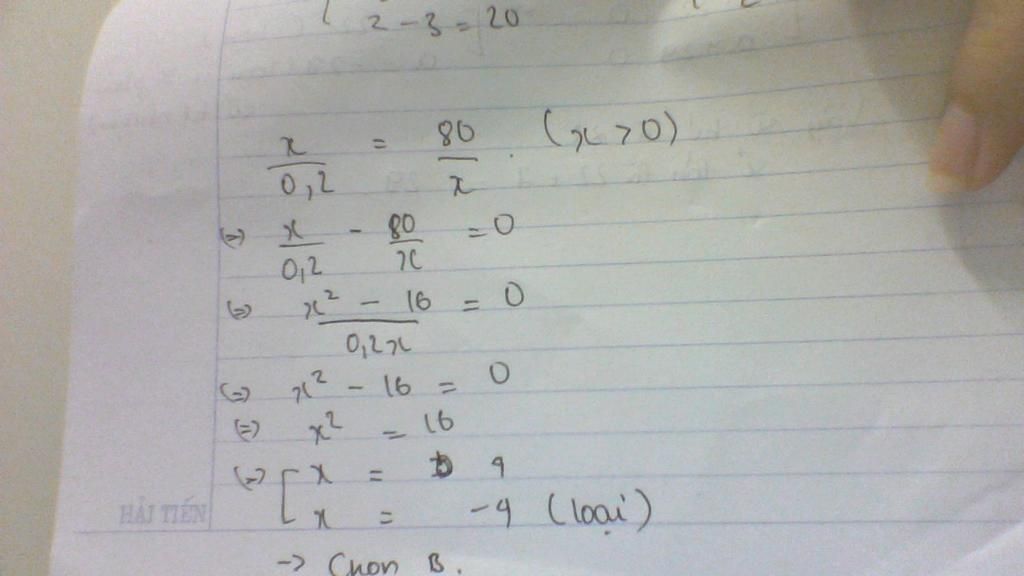 2 - 3 = 20
x/0,2 = 80/x . (x > 0)
(=) x/0,2 - 80/x = 0
(=) x² - 16/0,2x = 0
(=) x² - 16 = 0
(=) x² = 16
(=) [ x = 4
x = -4 (loại)
HẢI TIẾN
-> Chọn B.